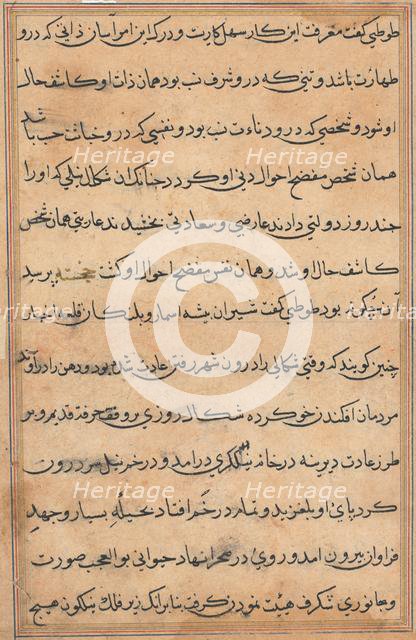 طوطی گفت معرفت این کار سهل کاریست و درک این امر آسان ذاتی که درو
طهارت باشد و تنی که درو شرف نسب بود همان ذات او کاشف حال
او شود و شخصی که درو دناءت نسب بود و نفسی که درو خباثت حسب باشد
همان شخص مفضح احوال دنی او گردد چنانکه آن شکال نیلی که او را
چند روز دولتی دادند عارضی و سعادتی بخشیدند عاریتی همان شخص
کاشف حال او شد و همان نفس مفضح احوال او گفت خجسته پرسید
آن چگونه بود طوطی گفت شیران بیشه اسمار و پلنگان قله اخبار
چنین گویند که وقتی شکالی را درون شهر رفتن عادت شده بود و دهن را در آوند
مردمان افکندن خو کرده شکال روزی بر وفق حرفت قدیم و بر
طرز عادت دیرینه در خانه نیلگری درآمد و در خم نیل سر درون
کرد پای او بلغزید و تمام در خم افتاد بحیله بسیار و جهد
فراوان بیرون آمد و روی در صحرا نهاد حیوانی بوالعجب صورت
و جانوری شگرف هیئت نمودن گرفت بنابرآنک زیر فلک نیلگون هیچ
Heritage
Images